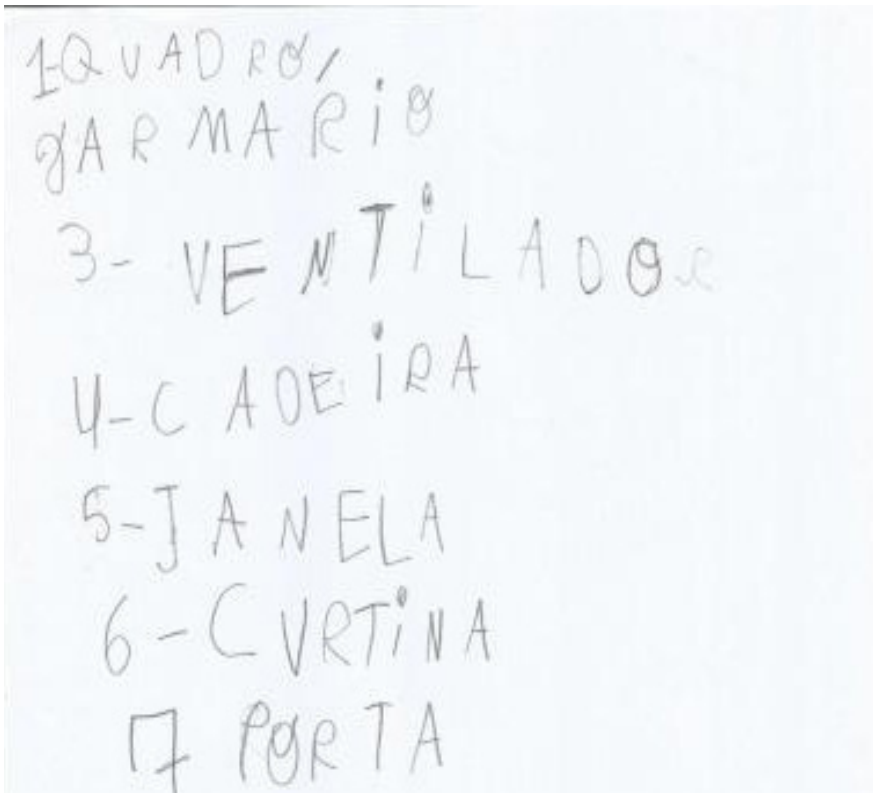 1-QUADRO,
2ARMÁRiO
3- VENTiLADOR
4-CADEiRA
5-JANELA
6-CURTiNA
7 PORTA